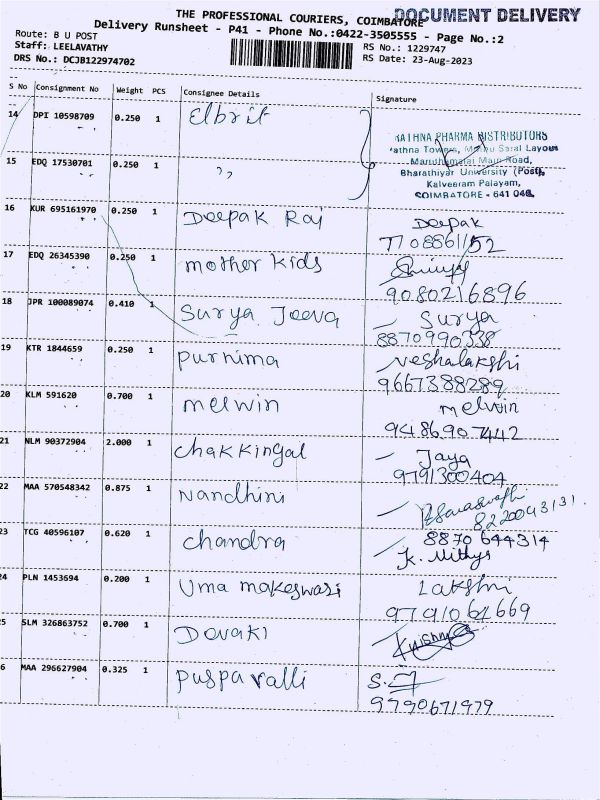 THE PROFESSIONAL COURIERS, COIMBATORE
DOCUMENT DELIVERY
Delivery Runsheet - P41 - Phone No.:0422-3505555 - Page No.:2
Route: B U POST
Staff: LEELAVATHY
RS No.: 1229747
DRS No.: DCJB122974702
RS Date: 23-Aug-2023
S No Consignment No Weight PCS Consignee Details Signature
14 DPI 10598709 0.250 1 Elbrit
RATHNA PHARMA DISTRIBUTORS
Layout
Maruthamalai Main Road,
15 EDQ 17530701 0.250 1 ,,
Bharathiyar University (Post),
Kalveeram Palayam,
COIMBATORE - 641 046.
16 KUR 695161970 0.250 1 Deepak Raj Deepak
7708861152
17 EDQ 26345390 0.250 1 mother kids
9080216896
18 JPR 100089074 0.410 1 Surya Jeeva Surya
8870990338
19 KTR 1844659 0.250 1 Purnima Neshalakshi
9667388289
20 KLM 591620 0.700 1 melwin melwin
9486907442
21 NLM 90372904 2.000 1 Chakkingal Jaya
9791300404
22 MAA 570548342 0.875 1 Nandhini
8220043131
23 TCG 40596107 0.620 1 chandra 8870644314
K. Mithys
24 PLN 1453694 0.200 1 Uma makeswari Lakshmi
9791061669
25 SLM 326863752 0.700 1 Devaki
26 MAA 296627904 0.325 1 Puspa valli
9790671979